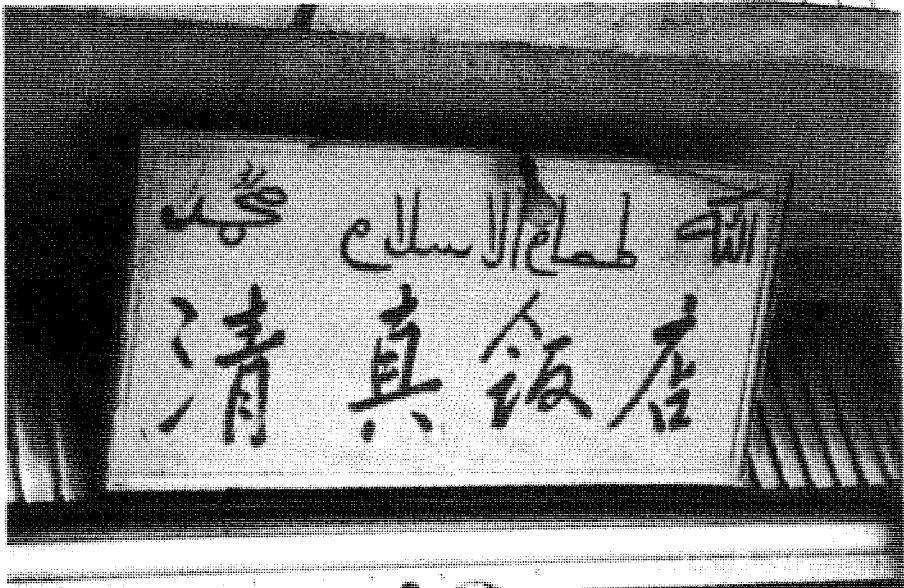 الله طعام الاسلام محمد
清真飯店